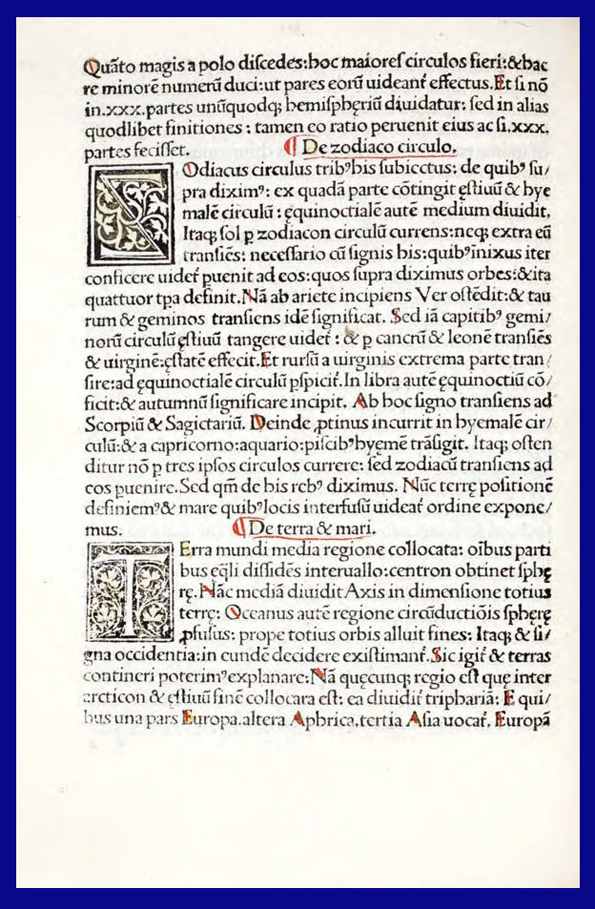 Quãto magis a polo discedes:hoc maioreſ circulos fieri:&hac
re minorẽ numerũ duci:ut pares eorũ uideanť effectus.Et ſi nõ
in.xxx.partes unũquodq; hemiſpheriũ diuidatur: ſed in alias
quodlibet finitiones : tamen eo ratio peruenit eius ac ſi.xxx.
partes feciſſet. ¶ De zodiaco circulo.
ZOdiacus circulus tribꝰhis ſubiectus: de quibꝰ ſu/
pra diximꝰ: ex quadã parte cõtingit ęſtiuũ & hye
malẽ circulũ : ęquinoctialẽ autẽ medium diuidit,
Itaq; ſol ꝑ zodiacon circulũ currens:neq; extra eũ
tranſiẽs: neceſſario cũ ſignis his:quibꝰinixus iter
conficere uideť ꝑuenit ad eos:quos ſupra diximus orbes:&ita
quattuor tꝑa definit.Nã ab ariete incipiens Ver oſtẽdit:& tau
rum & geminos tranſiens idẽ ſignificat. Sed iã capitibꝰ gemi/
norũ circulũ ęſtiuũ tangere uideť : & ꝑ cancrũ & leonẽ tranſiẽs
& uirginẽ:ęſtatẽ effecit.Et rurſũ a uirginis extrema parte tran/
ſire:ad ęquinoctialẽ circulũ ꝑſpiciť.In libra autẽ ęquinoctiũ cõ/
ficit:& autumnũ ſignificare incipit. Ab hoc ſigno tranſiens ad
Scorpiũ & Sagictariũ. Deinde ꝓtinus incurrit in hyemalẽ cir/
culũ:& a capricorno:aquario:piſcibꝰhyemẽ trãſigit. Itaq; oſten
ditur nõ ꝑ tres ipſos circulos currere: ſed zodiacũ tranſiens ad
eos ꝑuenire.Sed qm̃ de his rebꝰ diximus. Nũc terrę poſitionẽ
definiemꝰ& mare quibꝰlocis interfuſũ uideať ordine expone/
mus. ¶ De terra & mari.
TErra mundi media regione collocata: oĩbus parti
bus eq̃li diſſidẽs interuallo:centron obtinet ſphę
rę. Hãc mediã diuidit Axis in dimenſione totius
terrę: Oceanus autẽ regione circũductiõis ſpherę
ꝓfuſus: prope totius orbis alluit fines: Itaq; & ſi/
gna occidentia:in eundẽ decidere exiſtimanť.Sic igiť & terras
contineri poterimꝰexplanare:Nã quęcunq; regio eſt quę inter
arcticon & ęſtiuũ finẽ collocata eſt: ea diuidiť triphariã: E qui/
bus una pars Europa.altera Aphrica.tertia Aſia uocať. Europã